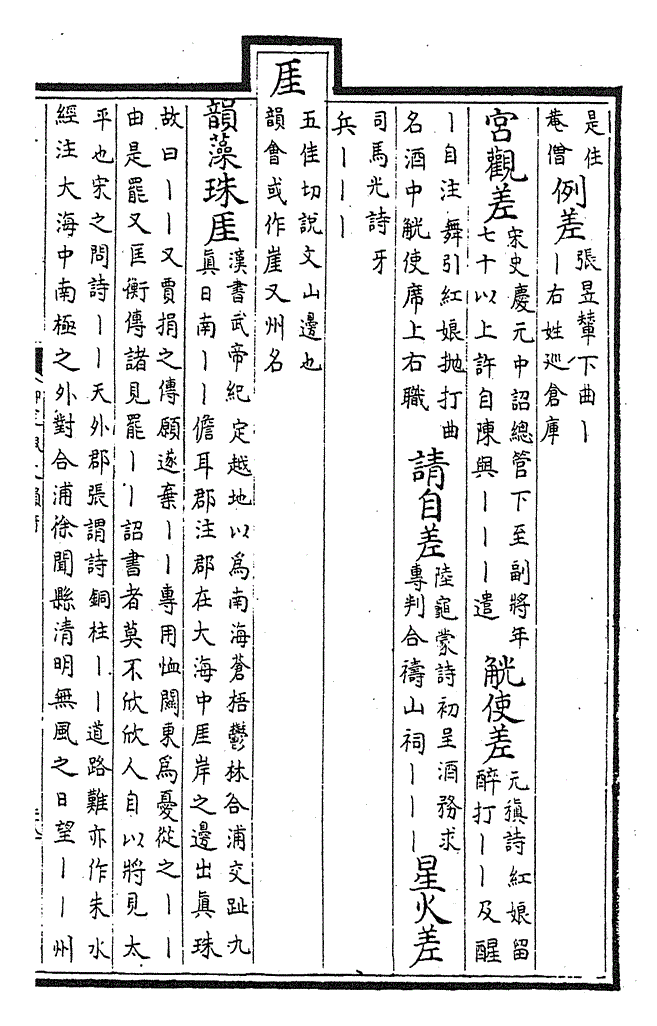 是佳
菴僧
例差
張昱輦下曲丨
丨右姓巡倉庫
宮觀差
宋史慶元中詔總管下至副將年
七十以上許自陳與丨丨丨遣
觥使差
元稹詩紅娘留
醉打丨丨及醒
丨自注舞引紅娘抛打曲
名酒中觥使席上右職
請自差
陸龜蒙詩初呈酒務求
專判合禱山祠丨丨丨
星火差
司馬光詩牙
兵丨丨丨
厓
五佳切說文山邊也
韻會或作崖又州名
韻藻珠厓
漢書武帝紀定越地以爲南海蒼梧鬱林合浦交趾九
眞日南丨丨儋耳郡注郡在大海中厓岸之邊出眞珠
故曰丨丨又賈捐之傳願遂棄丨丨專用恤關東爲憂從之丨丨
由是罷又匡衡傳諸見罷丨丨詔書者莫不欣欣人自以將見太
平也宋之問詩丨丨天外郡張謂詩銅柱丨丨道路難亦作朱水
經注大海中南極之外對合浦徐聞縣清明無風之日望丨丨州